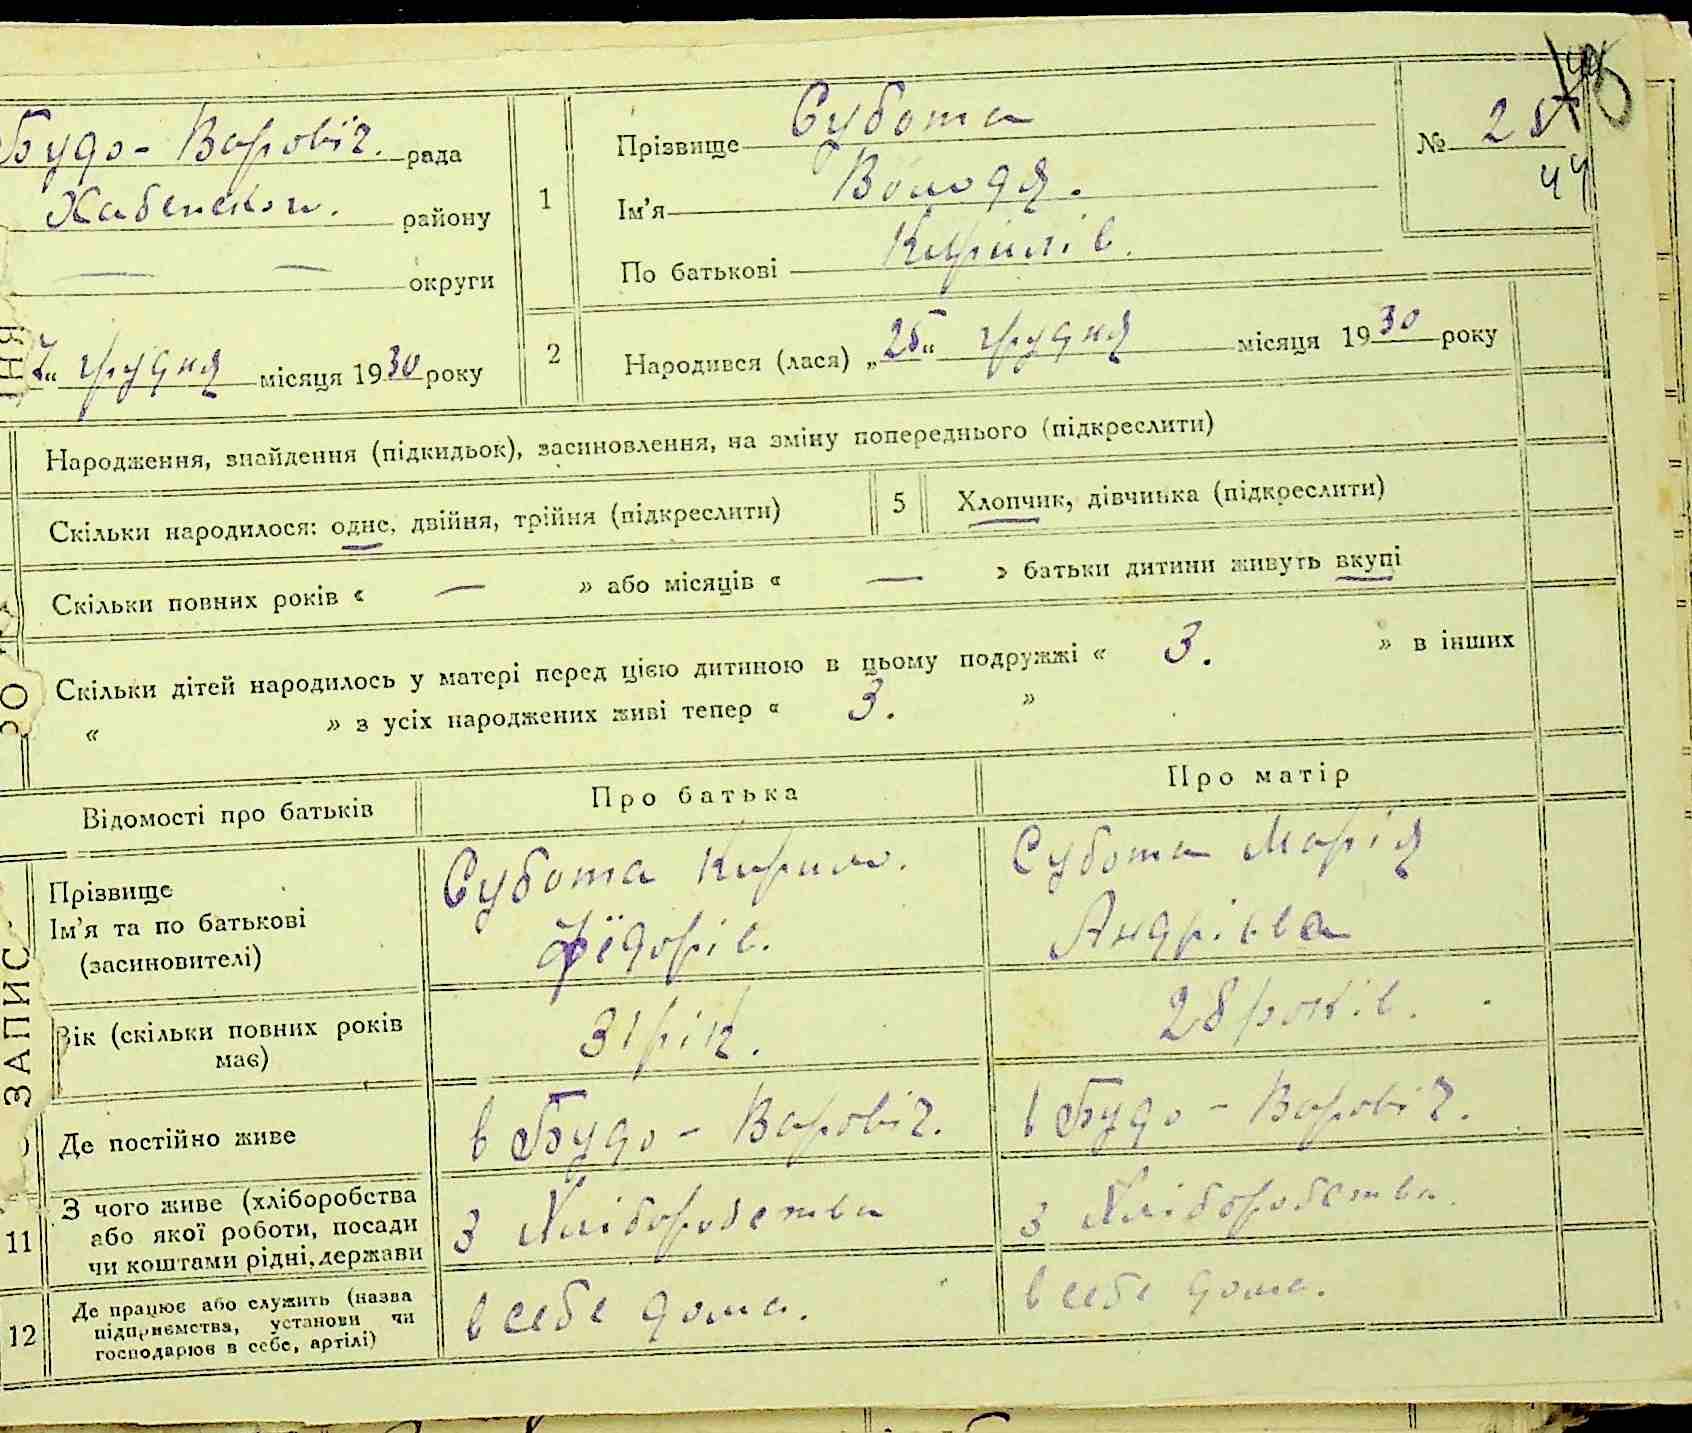 Будо-Варовіч. рада
Хабенськ. району
— — округи
грудня місяця 1930 року
1
Прізвище Субота
Ім'я Володя.
По батькові Кирилів.
№ 28
44
2
Народився (лася) „25“ грудня місяця 1930 року
Народження, знайдення (підкидьок), засиновлення, на зміну попереднього (підкреслити)
Скільки народилося: одне, двійня, трійня (підкреслити)
5
Хлопчик, дівчинка (підкреслити)
Скільки повних років « — » або місяців « — » батьки дитини живуть вкупі
Скільки дітей народилось у матері перед цією дитиною в цьому подружжі « 3. » в інших
« » з усіх народжених живі тепер « 3. »
Відомості про батьків
Про батька
Про матір
Прізвище
Ім'я та по батькові
(засиновителі)
Субота Кирило.
Фёдорів.
Субота Марія
Андріївна
Вік (скільки повних років
має)
31 рік.
28 років.
Де постійно живе
в Будо-Варовіч.
в Будо-Варовіч.
11
З чого живе (хліборобства
або якої роботи, посади
чи коштами рідні, держави
З Хліборобства
З Хліборобства.
12
Де працює або служить (назва
підприємства, установи чи
господарює в себе, артілі)
в себе дома.
в себе дома.
ЗАПИС